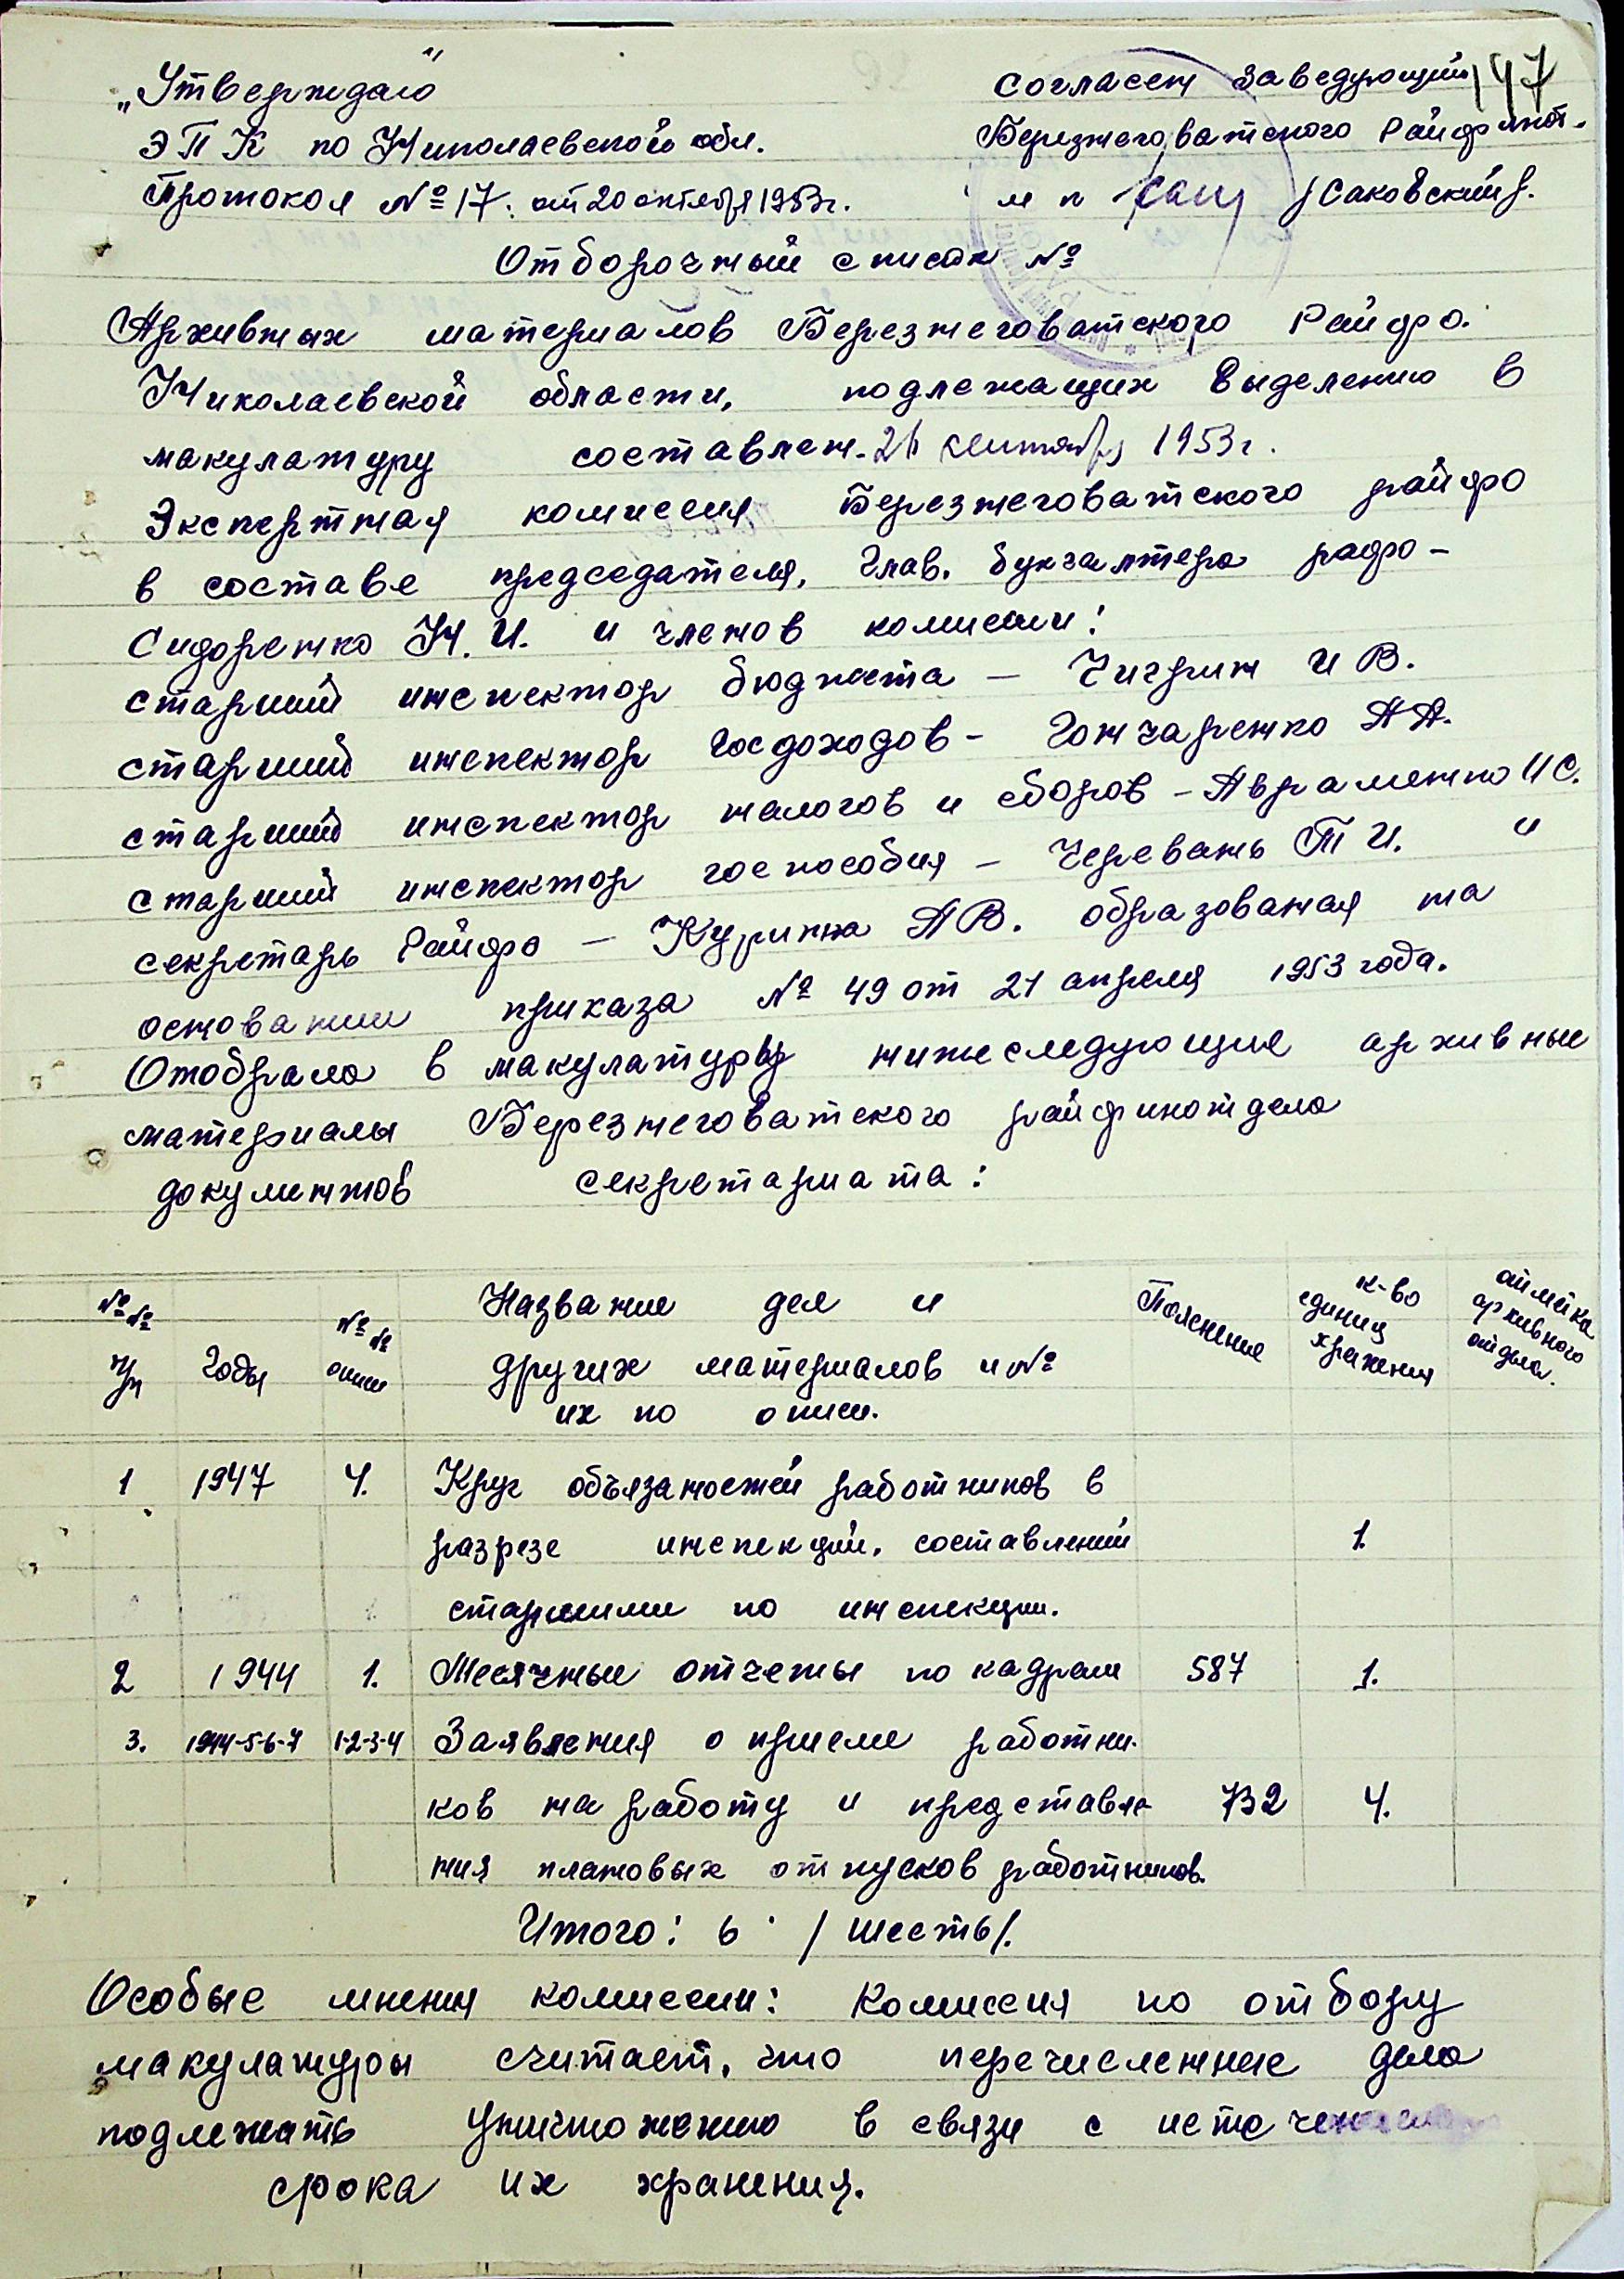 147
„Утверждаю"
ЭПК по Николаевской обл.
Протокол № 17. от 20 октября 1953г.
Согласен Заведующий
Березнеговатского Райфинот.
м п /Саковский/.
Отборочный список №
Архивных материалов Березнеговатского Райфо.
Николаевской области, подлежащих выделению в
макулатуру составлен. 26 сентября 1953г.
Экспертная комиссия Березнеговатского райфо
в составе председателя, Глав. бухгалтера рафо -
Сидоренко Н. И. и членов комиссии:
старший инспектор бюджета - Чигрин И В.
старший инспектор Госдоходов - Гончаренко А А.
старший инспектор налогов и сборов - Авраменко И С.
старший инспектор госпособия - Черевань Т И. и
секретарь Райфо - Курипка А В. образованая на
основании приказа № 49 от 21 апреля 1953 года.
Отобрала в макулатуру нижеследующие архивные
материалы Березнеговатского райфинотдела
документов секретариата:
№ № п/п Годы № № описи Название дел и других материалов и № их по описи. Пояснение к-во единиц хранения отметка архивного отдела.
1 1947 4. Круг объязаностей работников в
разрезе инспекций. составлений 1.
старшими по инспекции.
2 1944 1. Месячные отчеты по кадрам 587 1.
3. 1944-5-6-7 1-2-3-4 Заявления о приеме работни-
ков на работу и представле- 732 4.
ния плановых отпусков работников.
Итого: 6 / шесть/.
Особые мнения комиссии: Комиссия по отбору
макулатуры считает, что перечисленные дела
подлежать уничтожению в связи с истечением
срока их хранения.